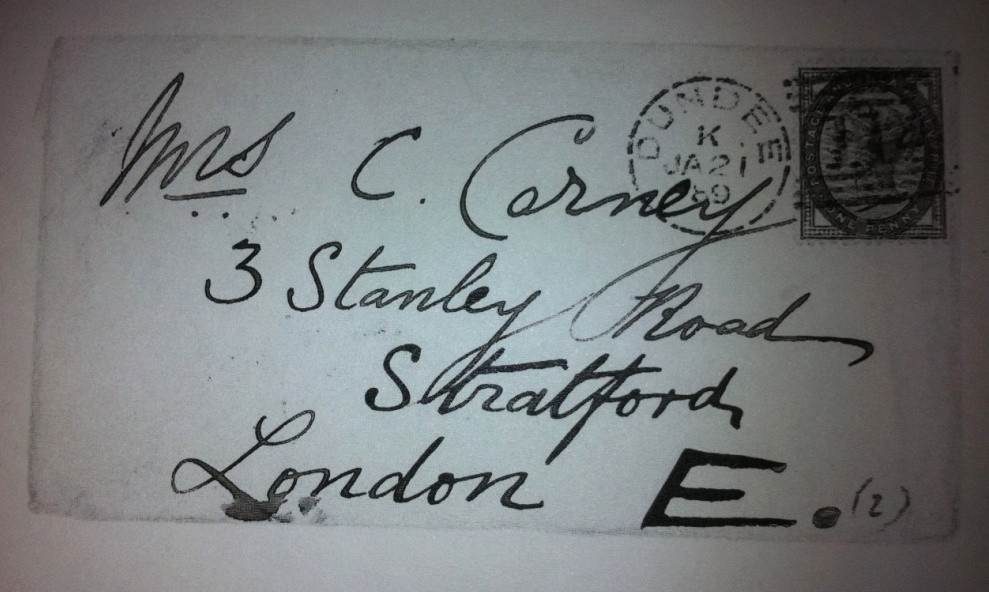 Mrs C. Carney
3 Stanley Road
Stratford
London E. (2)
DUNDEE
K
JA 21
89
POSTAGE AND
ONE PENNY